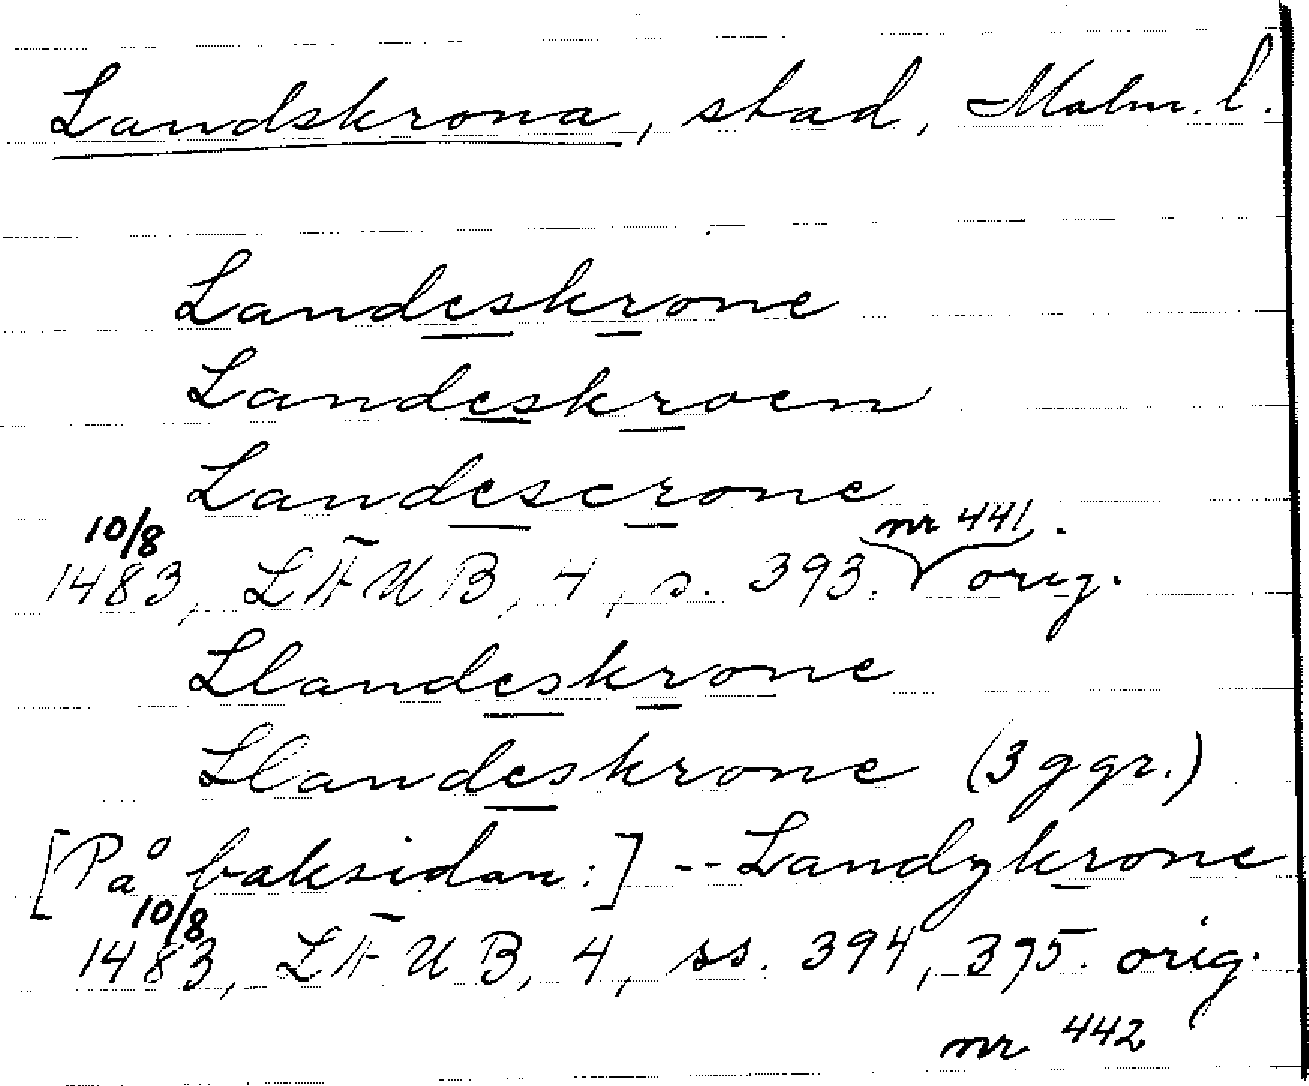 Landskrona, stad, Malm. l.
Landeskrone
Landeskroen
Landescrone
10/8 nr 441.
1483, LÄUB, 4, s. 393. orig.
Llandeskrone
Llandeskrone (3 ggr.)
[På baksidan:] -- Landzkrone
10/8
1483, LÄUB, 4, ss. 394, 395. orig.
nr 442